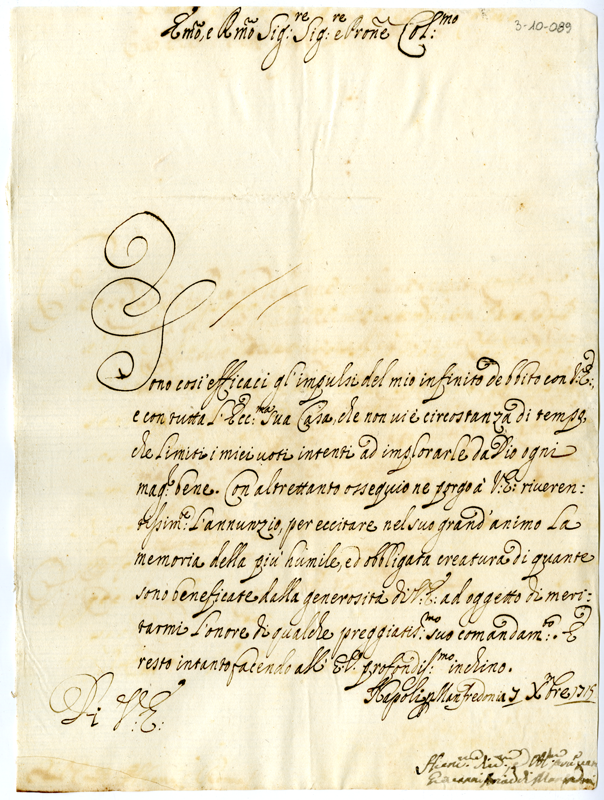 3-10-089
Emo, e Rmo Sig:re Sig:re e Prone Col:mo
Sono così efficaci gl'impulsi del mio infinito debbito con V: E:,
e con tutta l'Ecc:ma Sua Casa, che non vi è circostanza di tempo,
che limiti i miei voti intenti ad implorarle da Dio ogni
mag: bene. Con altrettanto ossequio ne porgo à V: E: riveren-
tissim: l'annunzio, per eccitare nel suo grand'animo la
memoria della più humile, ed obbligata creatura di quante
sono beneficate dalla generosità di V: E: ad oggetto di meri-
tarmi l'onore di qualche preggiatis:mo suo comandam:to. E
resto intanto facendo all' E: V: profondis:mo inchino.
Napoli p Manfredonia 7 Xbre 1715
Di V: E: